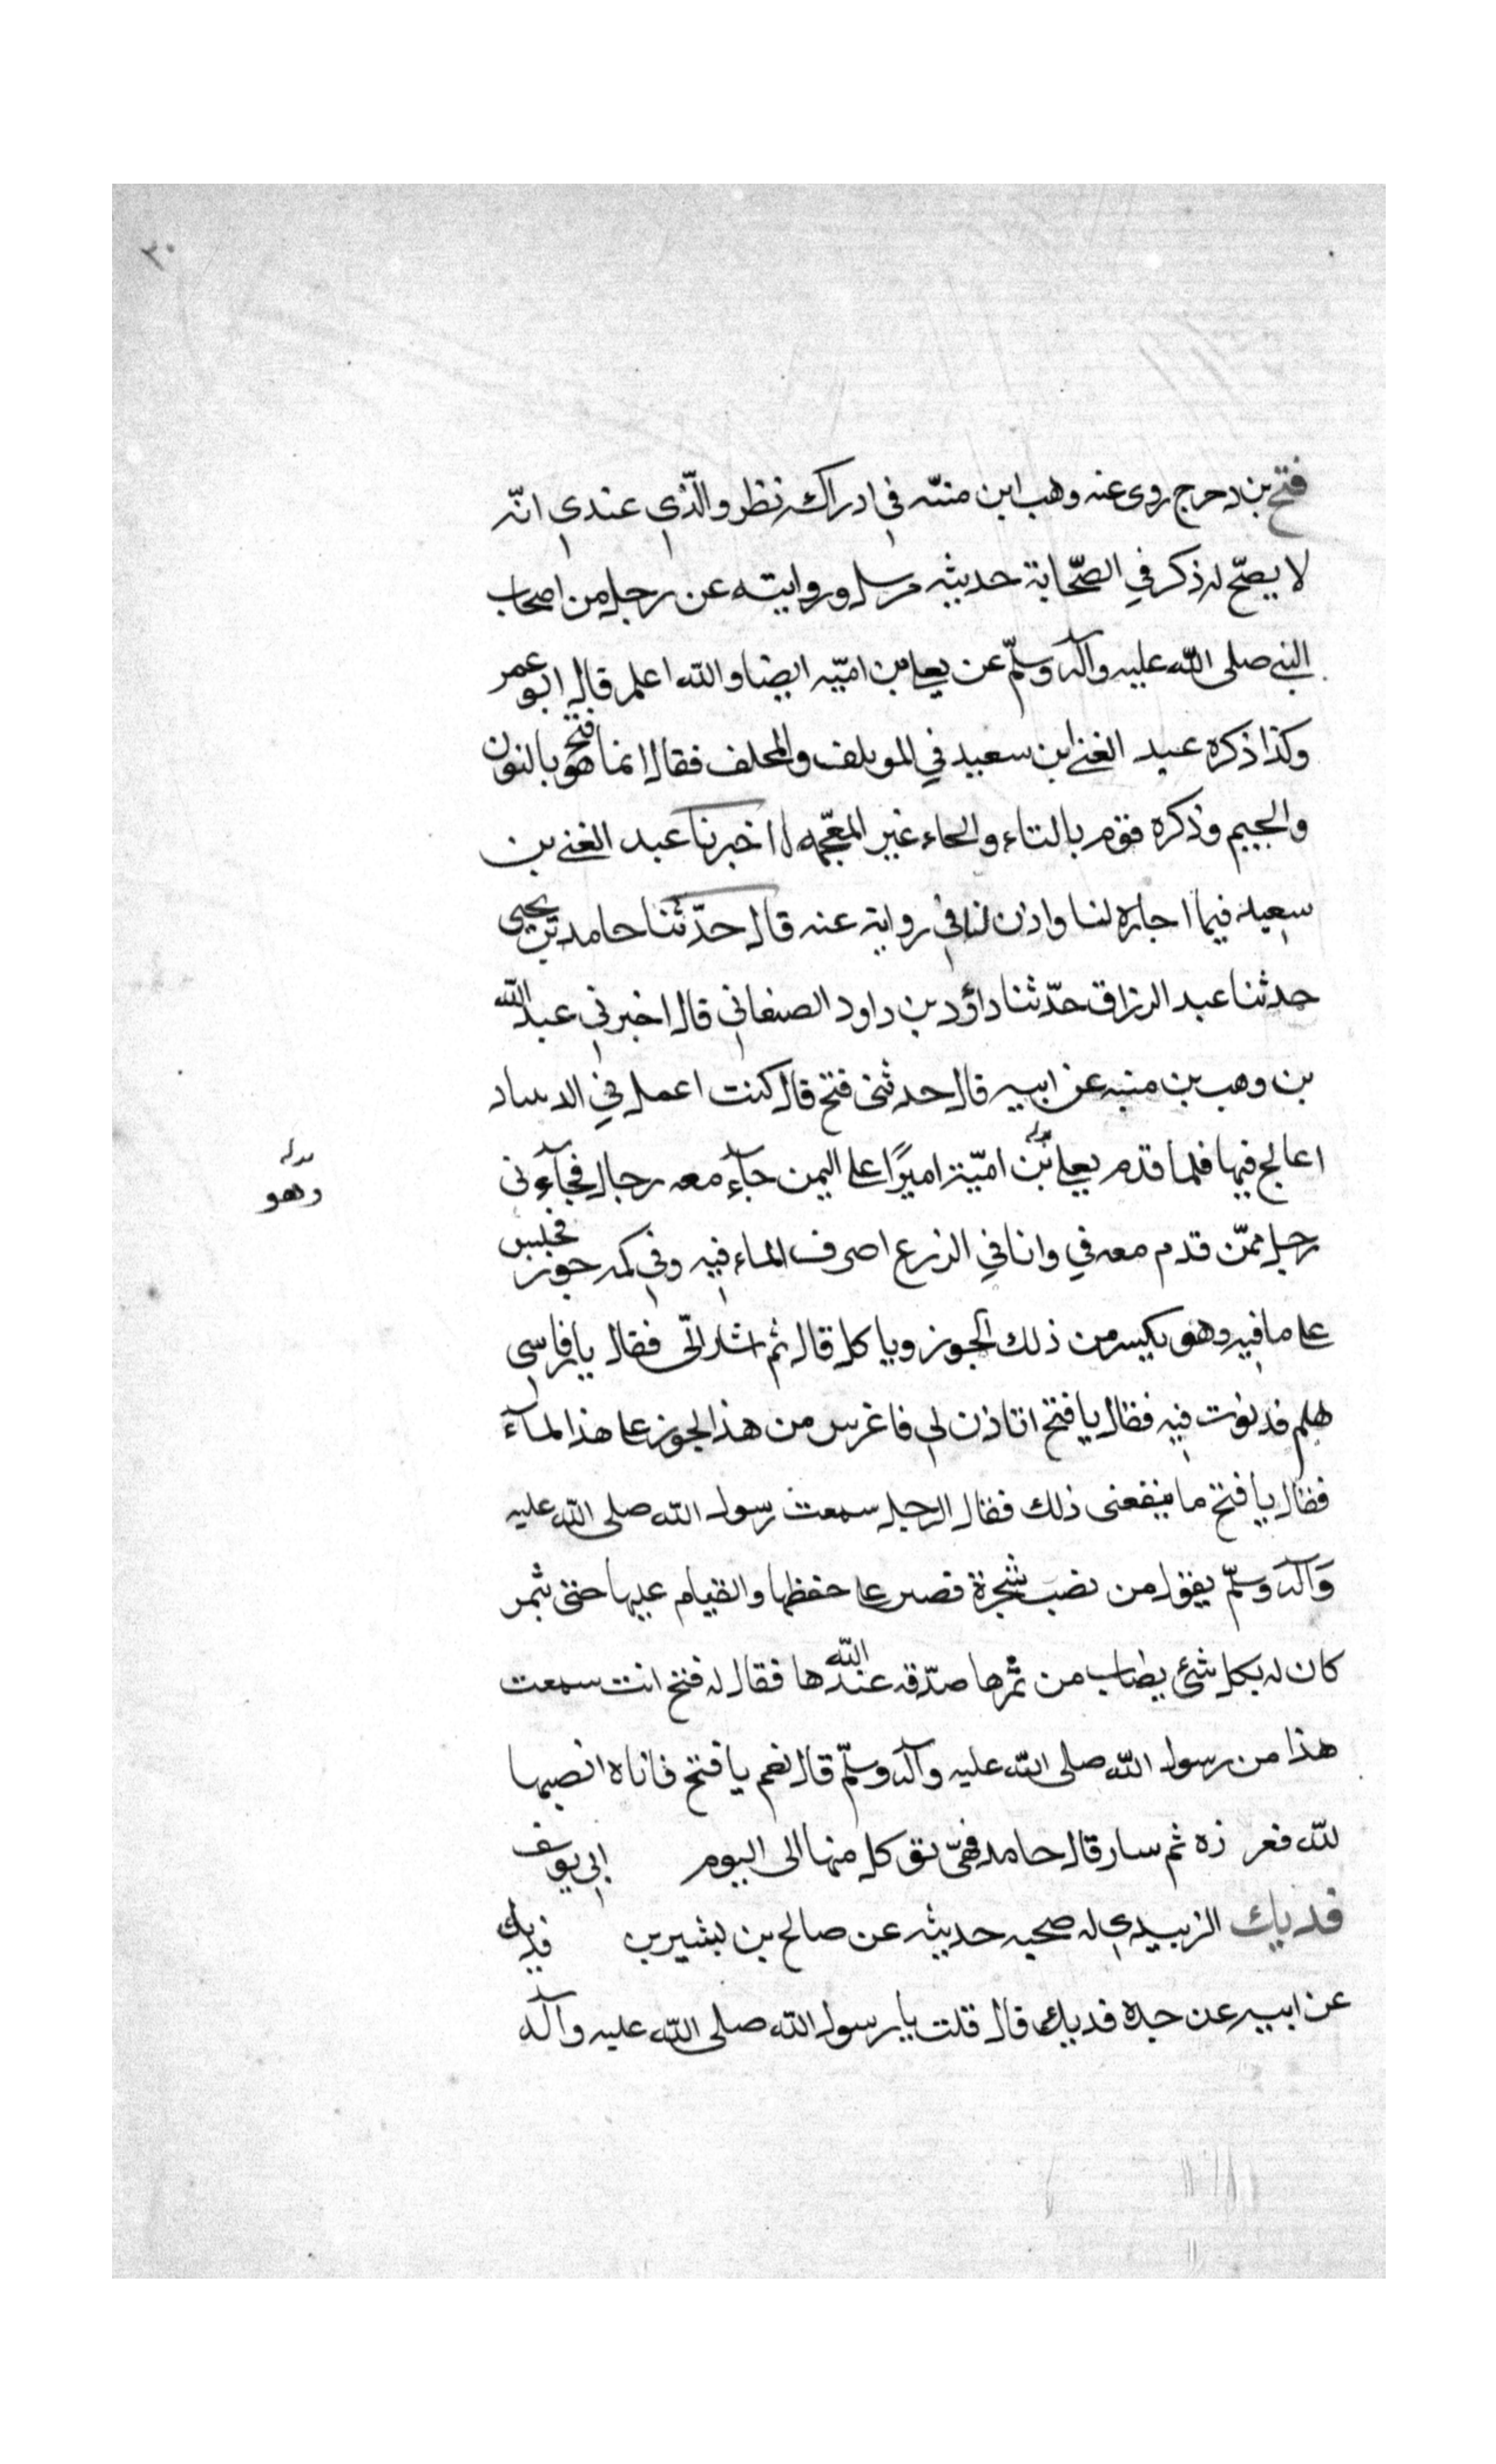 ٣٠
فتح بن دحرج روى عنه وهب ابن منبّه في ادراكه نظر والّذي عندي انّه
لا يصحّ له ذكر في الصّحابة حديثه مرسل وروايته عن رجل من اصحاب
النبي صلى الله عليه وآله وسلّم عن يعلى بن اميّه ايضا والله اعلم قال ابو عمر
وكذا ذكره عبد الغني ابن سعيد في المويلف والمحلف فقال انما هو فتح بالنون
والجيم وذكره قوم بالتاء والحاء غير المعجمه اخبرنا عبد الغني بن
سعيد فيما اجازه لنا واذن لنا في رواية عنه قال حدّثنا حامد بن يحيى
حدثنا عبد الرزاق حدّثنا داؤد بن داود الصنعاني قال اخبرني عبد الله
بن وهب بن منبه عن ابيه قال حدثنى فتح قال كنت اعمل في الدساد
اعالج فيها فلما قدم يعلى بن اميّة اميرًا على اليمن جآء معه رجال فجآءنى
وهو
رجل ممّن قدم معه في وانا في الزرع اصرف الماء فيه وفي كمه جوز فجلس
على ما فيه وهو يكيسر من ذلك الجوز وياكل قال ثم اشار الىّ فقال يا فراسي
هلم فدنوت فيه فقال يا فتح اتاذن لي فاغرس من هذا الجوز على هذا المآء
فقال يا فتح ما ينفعنى ذلك فقال الرجل سمعت رسول الله صلى الله عليه
وآله وسلّم يقول من نصب شجرة فصبر على حفظها والقيام عليها حتى تثمر
كان له بكل شئ يصاب من ثمرها صدّقه عند الله ها فقال له فتح انت سمعت
هذا من رسول الله صلى الله عليه وآله وسلّم قال نعم يا فتح فاناه انصبها
لله فغر زه ثم سار قال حامد فهىّ توكل منها الى اليوم ابي يوسف
فديك الزبيدي له صحبه حديثه عن صالح بن بشير بن فديك
عن ابيه عن جده فديك قال قلت يا رسول الله صلى الله عليه وآله